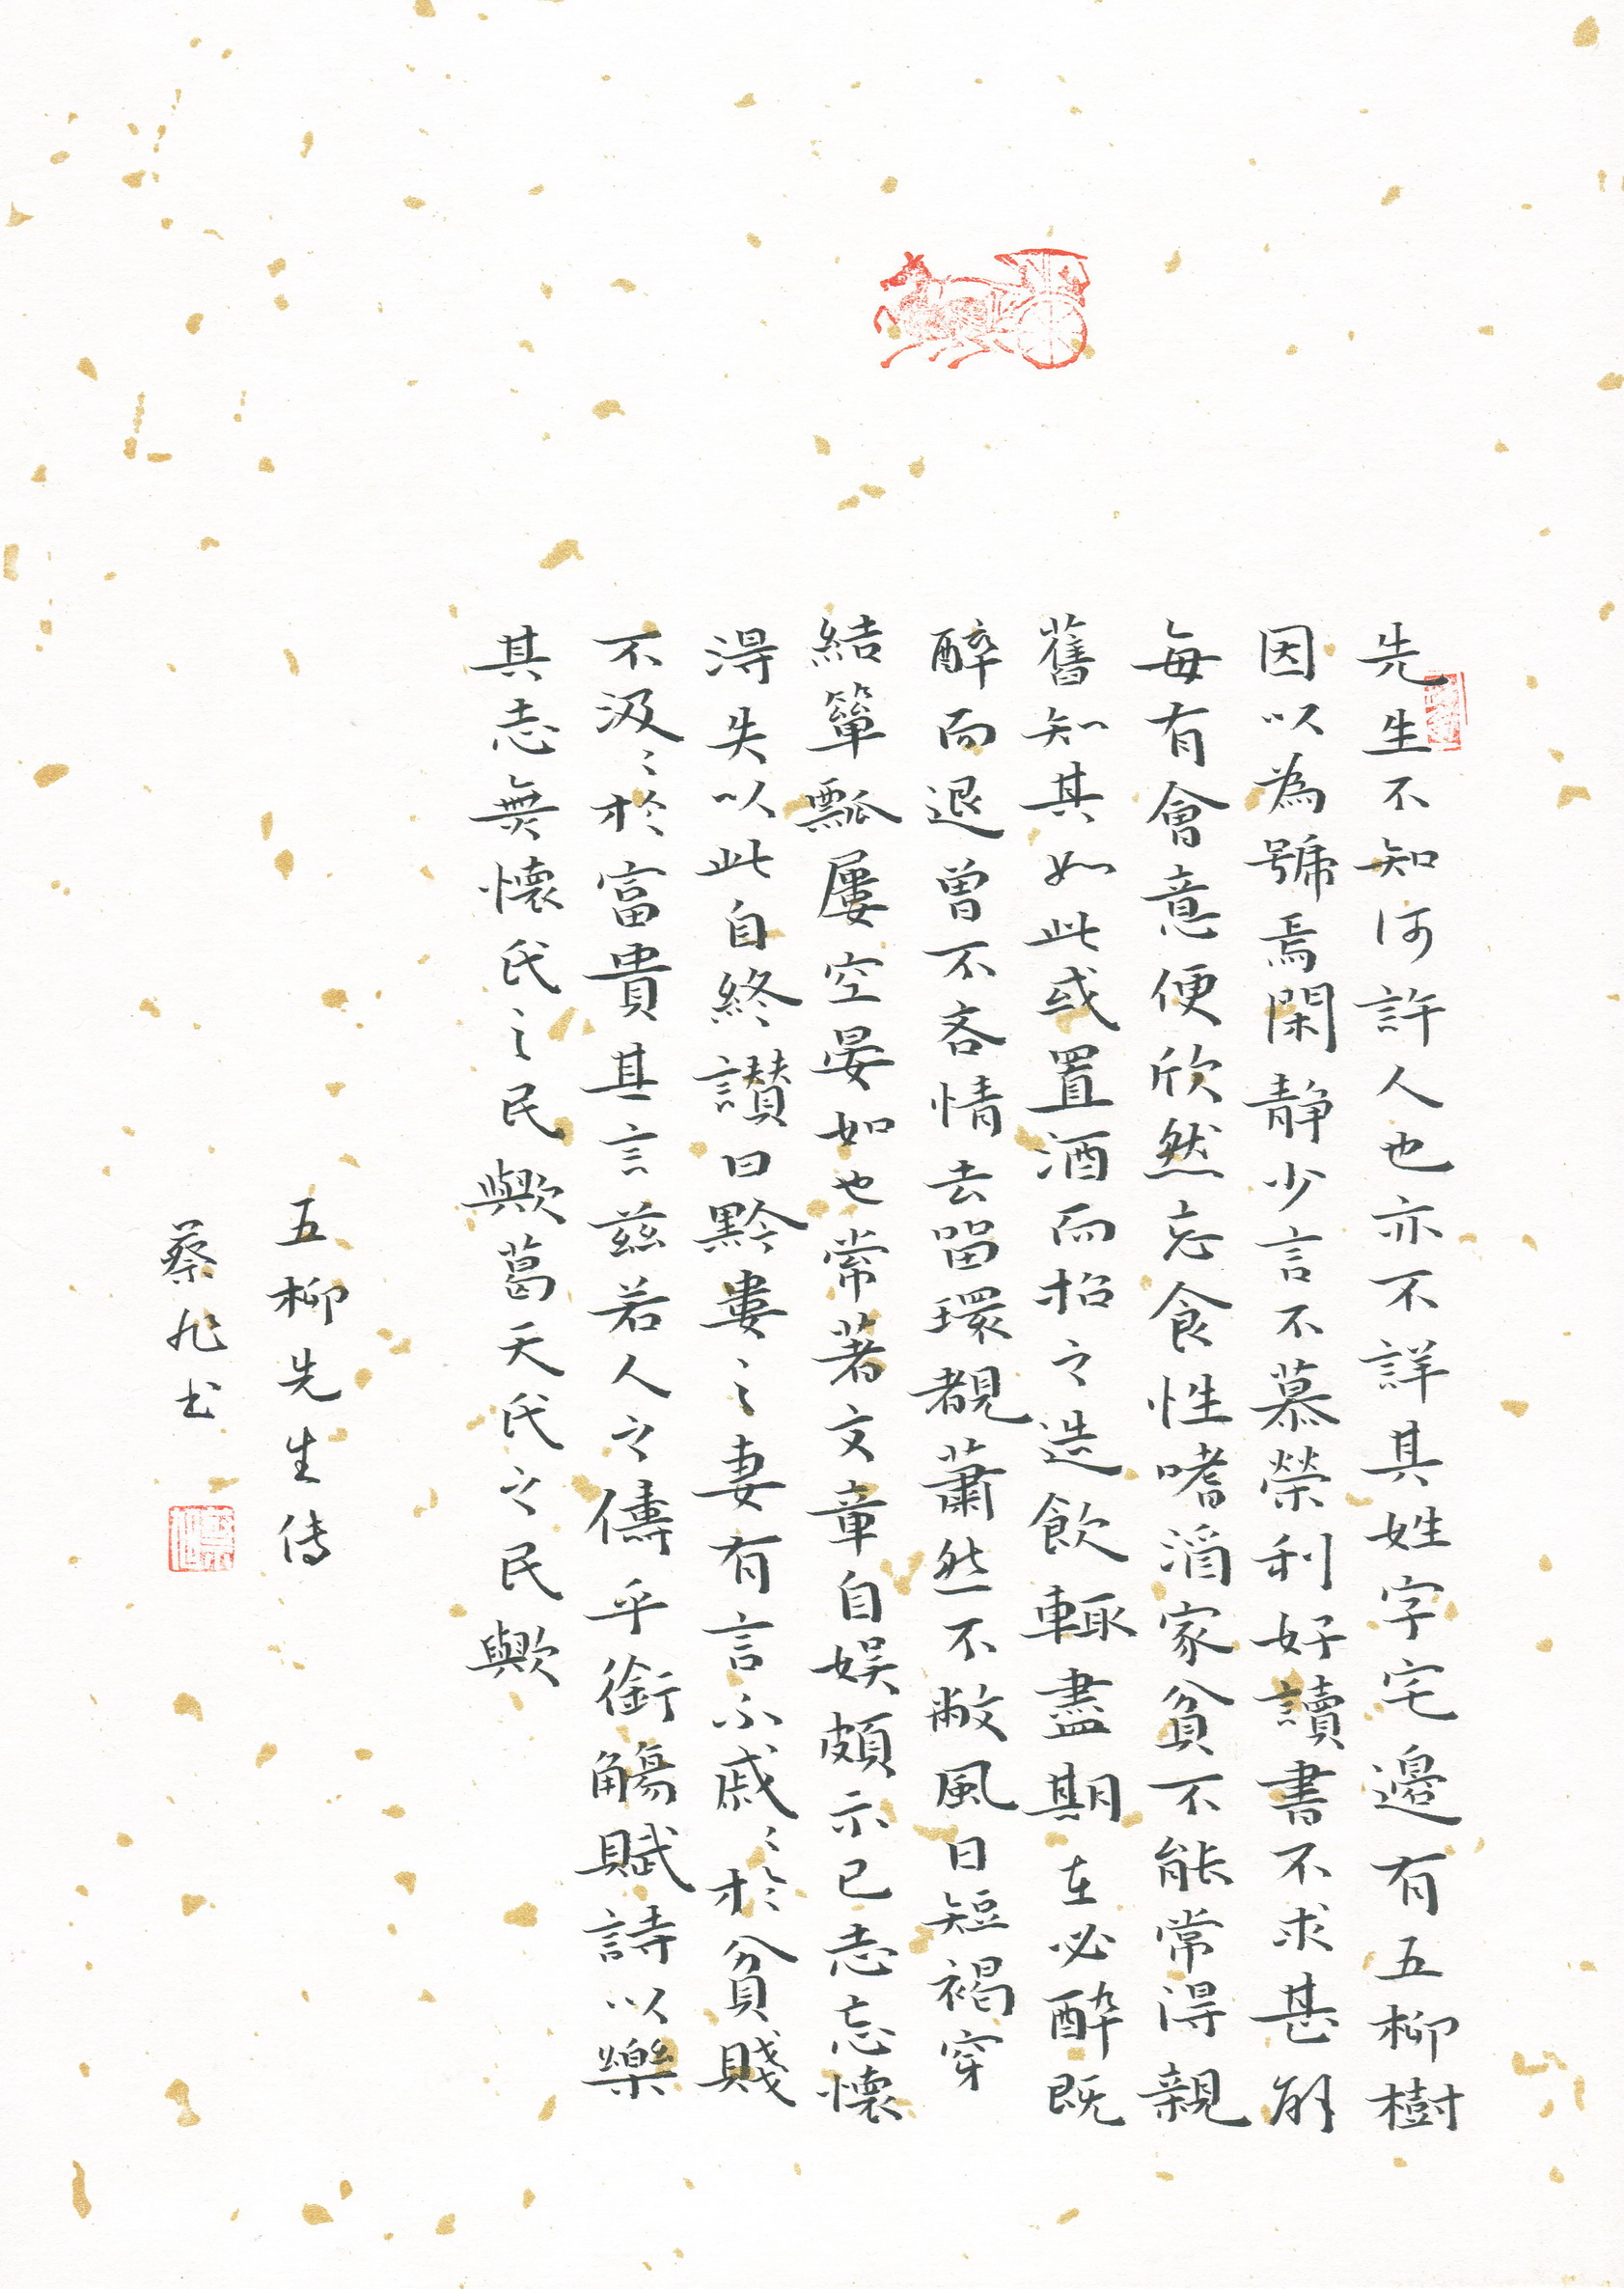 先生不知何許人也亦不詳其姓字宅邊有五柳樹
因以為號焉閑靜少言不慕榮利好讀書不求甚解
每有會意便欣然忘食性嗜酒家貧不能常得親
舊知其如此或置酒而招之造飲輒盡期在必醉既
醉而退曾不吝情去留環覩蕭然不敝風日短褐穿
結簞瓢屢空晏如也常著文章自娛頗示己志忘懷
得失以此自終讚曰黔婁之妻有言不戚〻於貧賤
不汲〻於富貴其言茲若人之儔乎銜觴賦詩以樂
其志無懷氏之民歟葛天氏之民歟
五柳先生传
蔡旭书